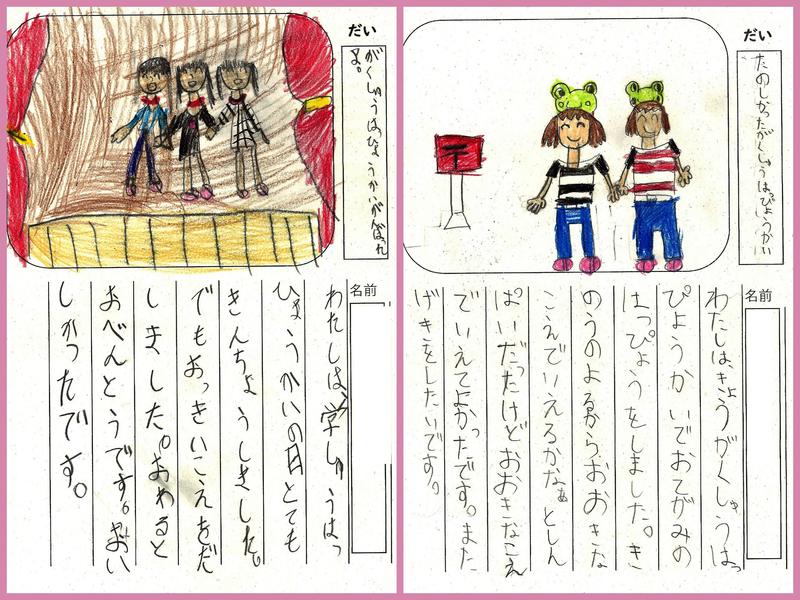 だい
がくしゅうはっぴょうかいがんばれ
よ。
名前
わたしは、学しゅうはっ
ぴょうかいの日とても
きんちょうしきした。
でもおっきいこえをだ
しました。おわると
おべんとうです。おい
しかったです。
だい
たのしかったがくしゅうはっぴょうかい
名前
わたしは、きょうがくしゅうはっ
ぴょうかいでおてがみの
はっぴょうをしました。き
のうのよるからおおきな
こえでいえるかなぁとしん
ぱいだったけどおおきなこえ
でいえてよかったです。また
げきをしたいです。
〒